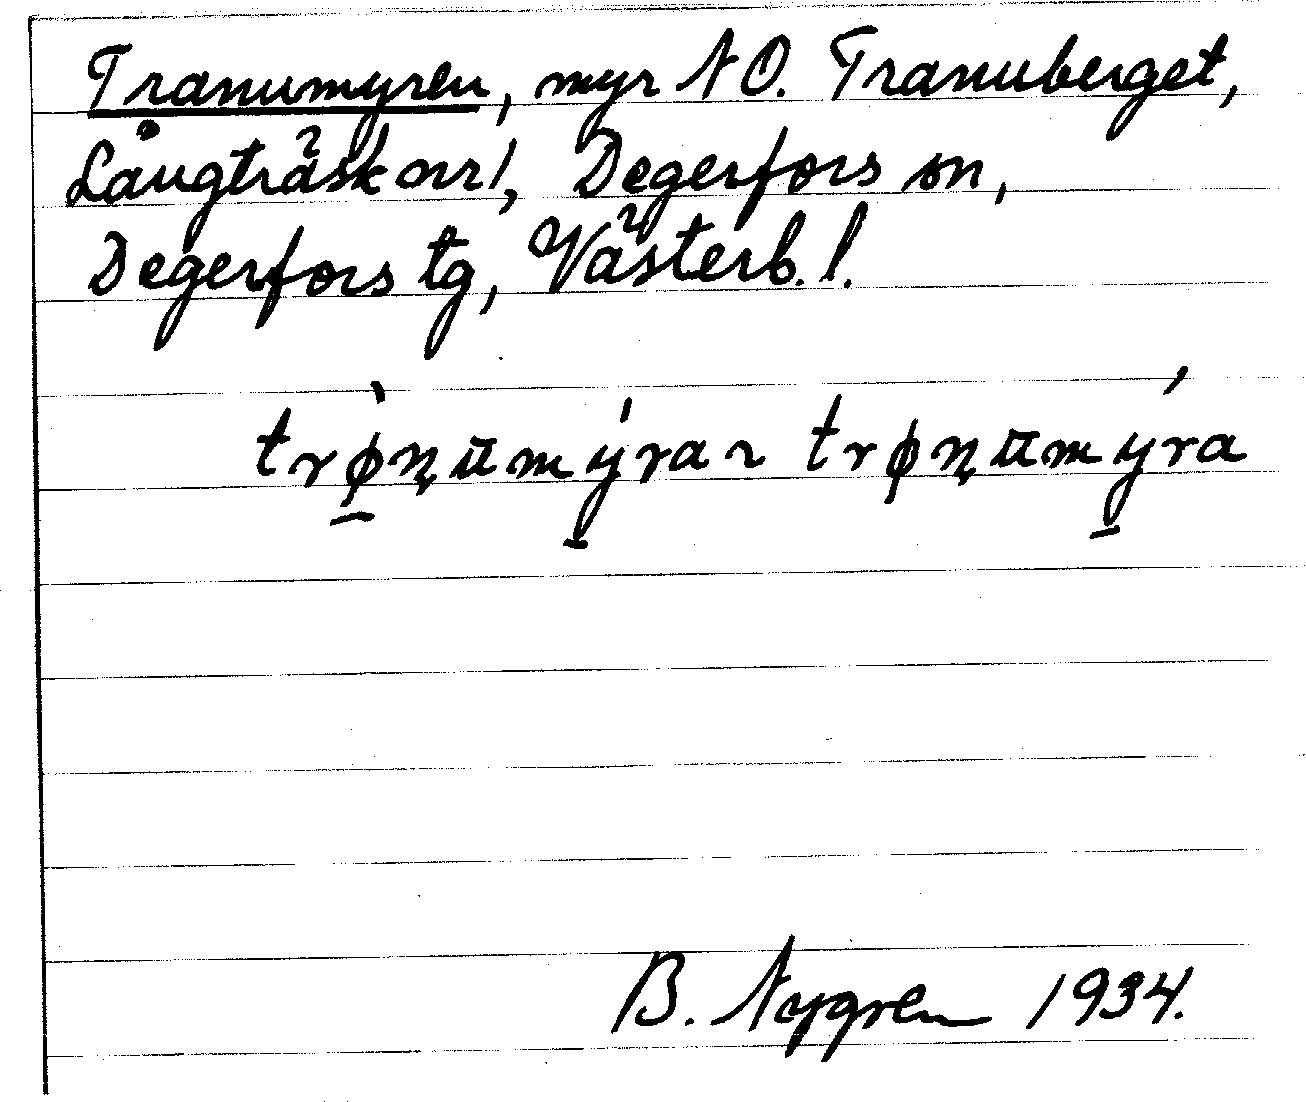 Tranumyren, myr NO. Tranuberget,
Långträsk orr!, Degerfors sn,
Degerfors tg, Västerb. l.
trø̀nūmýra ~ trønūmýra
B. Nygren 1934.